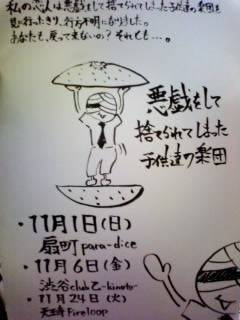 私の恋人は悪戯をして捨てられてしまった子供達の楽団を
見に行ったきり、行方不明になりました。
あなたも、戻って来ないの？それとも…。
悪戯をして
捨てられてしまった
子供達の楽団
・11月1日(日)
扇町para-dice
・11月6日(金)
渋谷club乙-kinoto-
・11月24日(火)
天王寺Fireloop